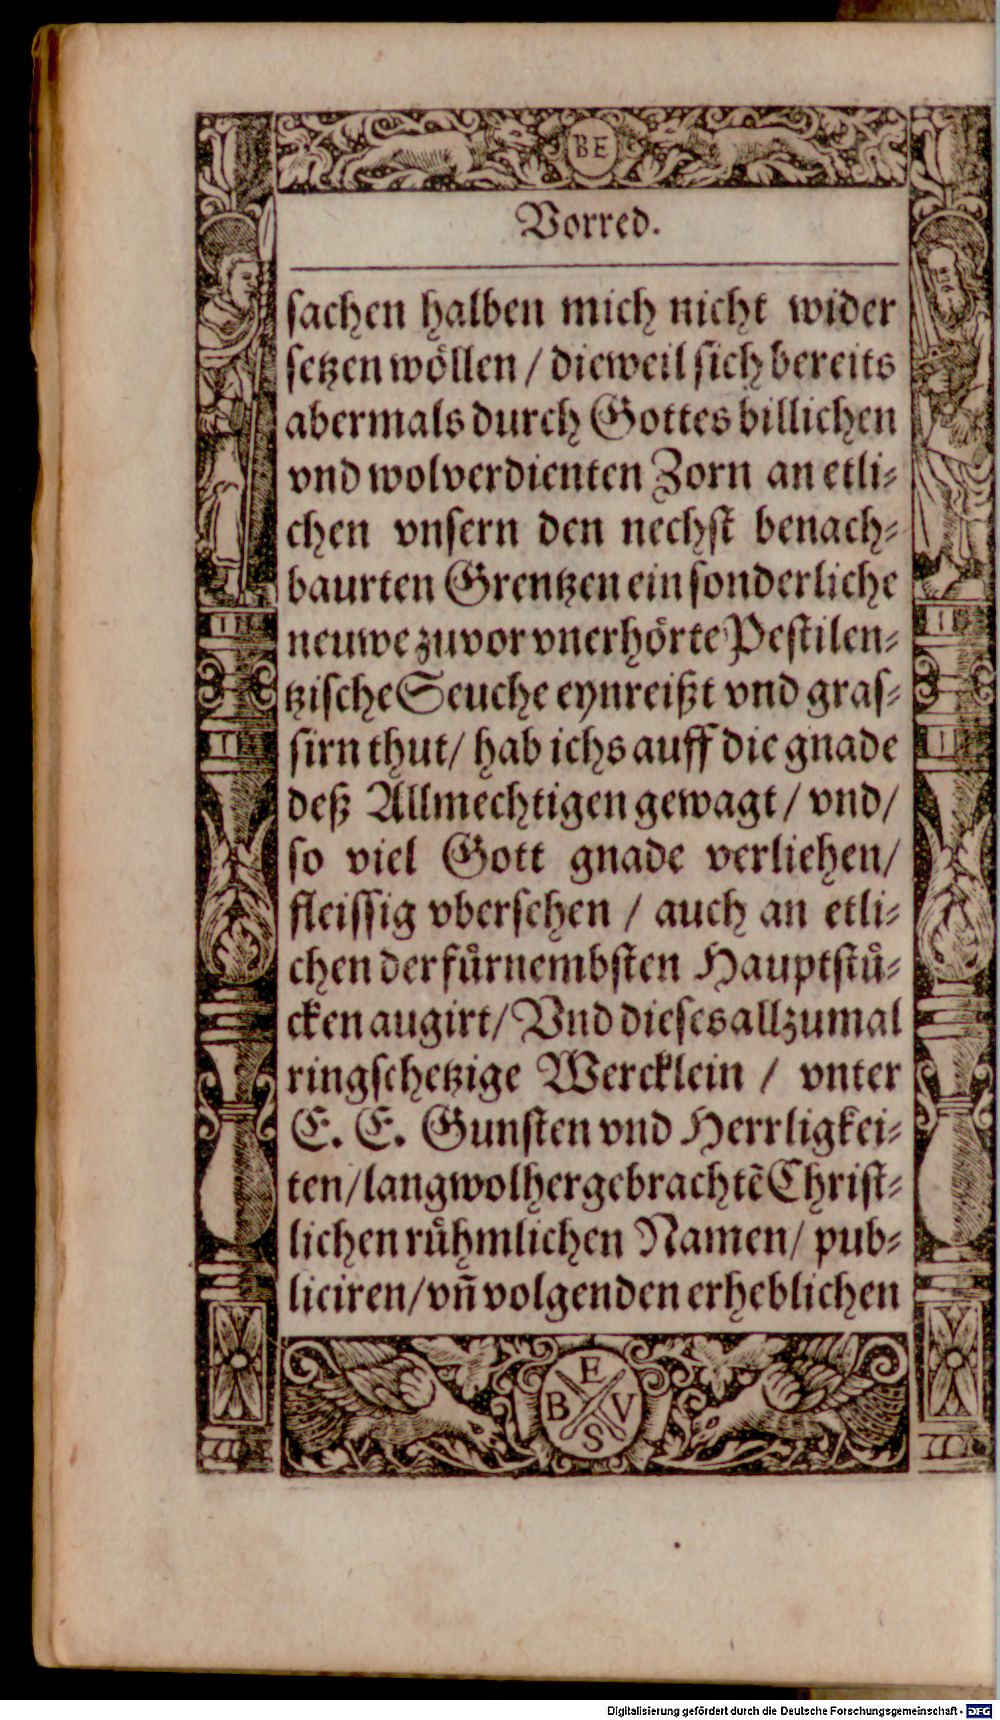 BE
Vorred.
sachen halben mich nicht wider
setzen wöllen / dieweil sich bereits
abermals durch Gottes billichen
vnd wolverdienten Zorn an etli-
chen vnsern den nechst benach-
baurten Grentzen ein sonderliche
neuwe zuvor vnerhörte Pestilen-
tzische Seuche eynreißt vnd gras-
sirn thut / hab ichs auff die gnade
deß Allmechtigen gewagt / vnd /
so viel Gott gnade verliehen /
fleissig vbersehen / auch an etli-
chen der fürnembsten Hauptstü-
cken augirt / Vnd dieses allzumal
ringschetzige Wercklein / vnter
E. E. Gunsten vnd Herrligkei-
ten / langwolhergebrachtē Christ-
lichen rühmlichen Namen / pub-
liciren / vñ volgenden erheblichen
E
B V
S
Digitalisierung gefördert durch die Deutsche Forschungsgemeinschaft - DFG